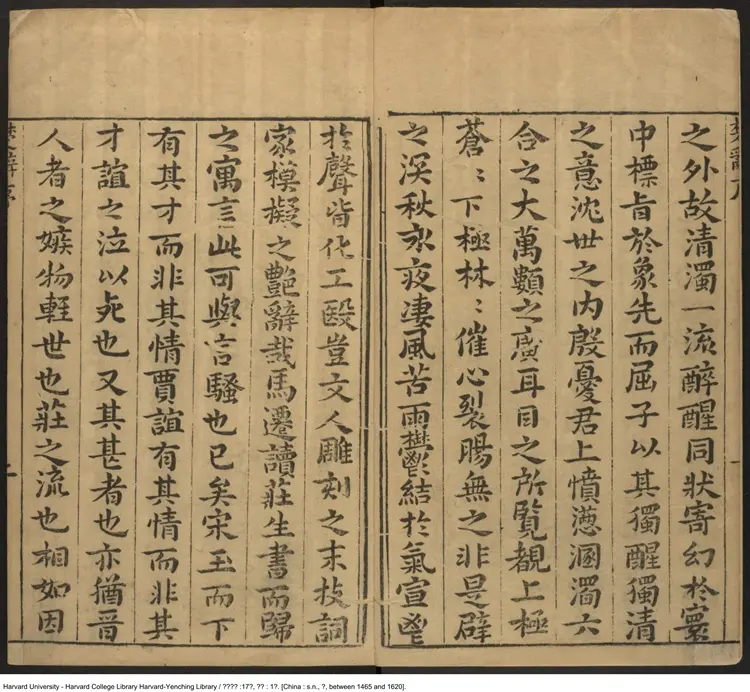 之外故清濁一流醉醒同狀寄幻於寰
中標旨於象先而屈子以其獨醒獨清
之意沈世之內殷憂君上憤懣溷濁六
合之大萬類之廣耳目之所覽覩上極
蒼〻下極林〻催心裂腸無之非是辟
之深秋永夜凄風苦雨鬱結於氣宣鬯
於聲皆化工殹豈文人雕刻之末技詞
家模擬之艷辭哉馬遷讀莊生書而歸
之寓言此可與言騷也已矣宋玉而下
有其才而非其情賈誼有其情而非其
才誼之泣以死也又其甚者也亦猶晉
人者之嫉物輕世也莊之流也相如因
楚辭序
Harvard University - Harvard College Library Harvard-Yenching Library / ???? :17?, ?? : 1?. [China : s.n., ?, between 1465 and 1620].